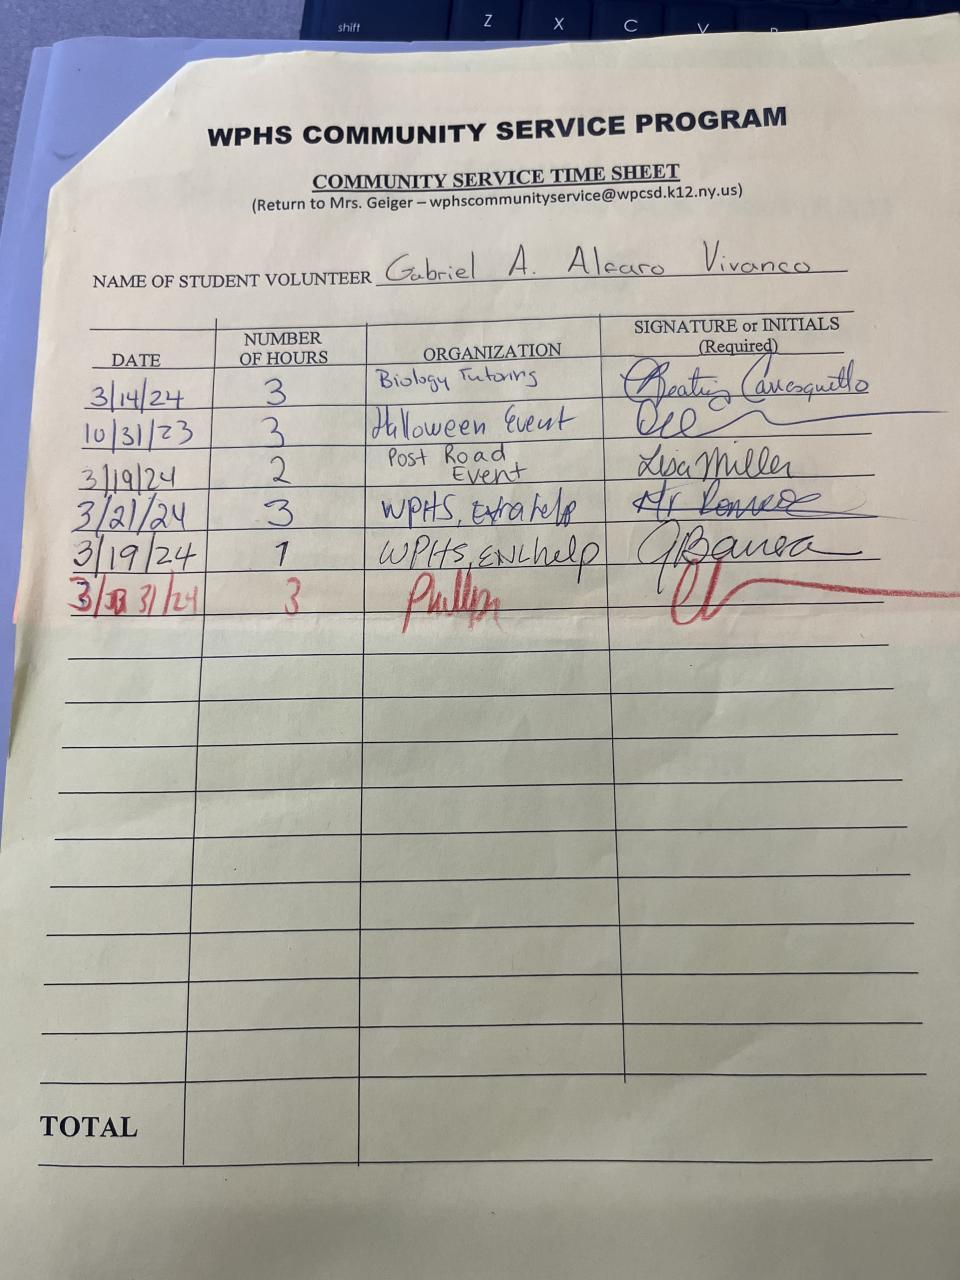 shift Z X C V
WPHS COMMUNITY SERVICE PROGRAM
COMMUNITY SERVICE TIME SHEET
(Return to Mrs. Geiger – wphscommunityservice@wpcsd.k12.ny.us)
NAME OF STUDENT VOLUNTEER Gabriel A. Alcaro Vivanco
DATE NUMBER OF HOURS ORGANIZATION SIGNATURE or INITIALS (Required)
3/14/24 3 Biology Tutoring
10/31/23 3 Halloween Event
3/19/24 2 Post Road Event Lisa Miller
3/21/24 3 WPHS, Extra help Mr
3/19/24 1 WPHS, ENL help
3/31/24 3
TOTAL